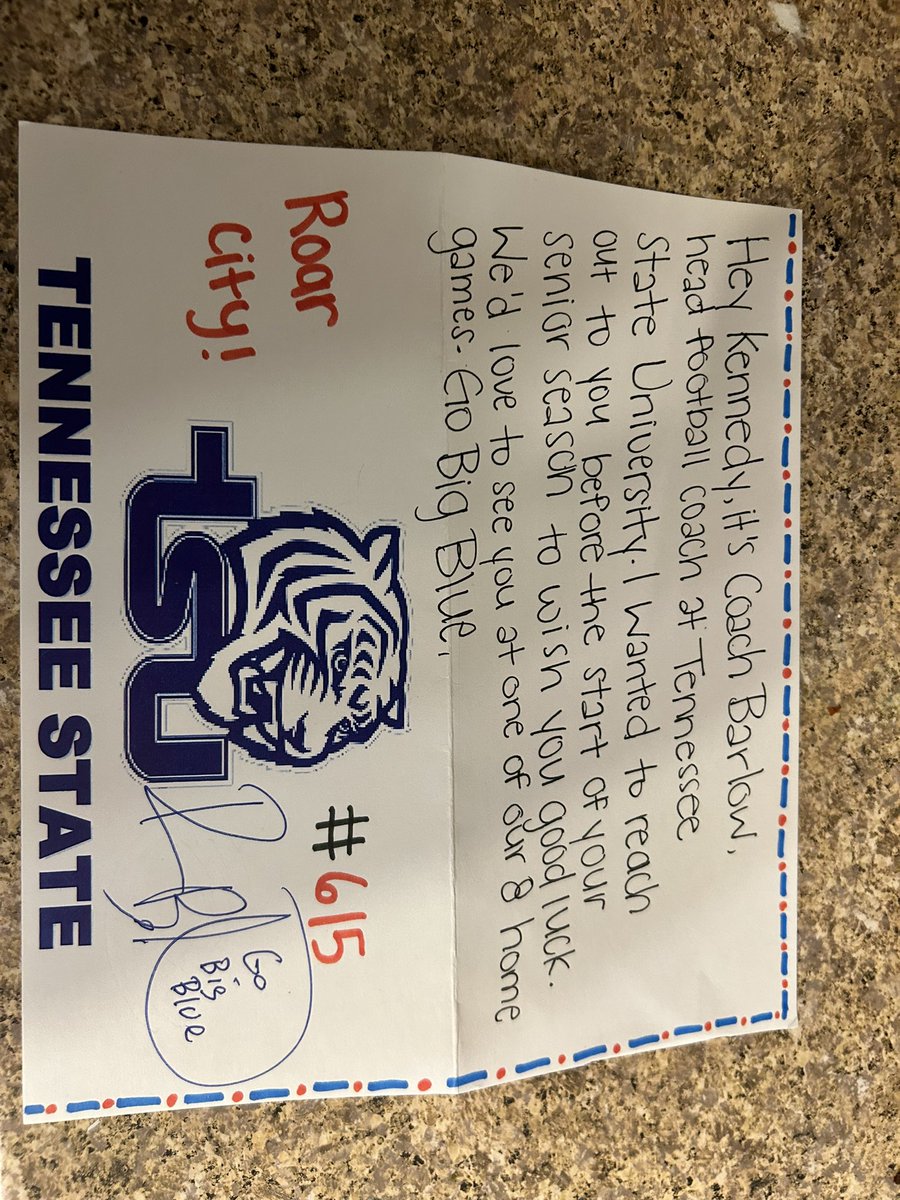 Hey Kennedy, it's Coach Barlow,
head football coach at Tennessee
State University. I wanted to reach
out to you before the start of your
senior season to wish you good luck.
We'd love to see you at one of our 8 home
games. Go Big Blue.
Roar
city!
#615
TSU
Go
Big
Blue
TENNESSEE STATE